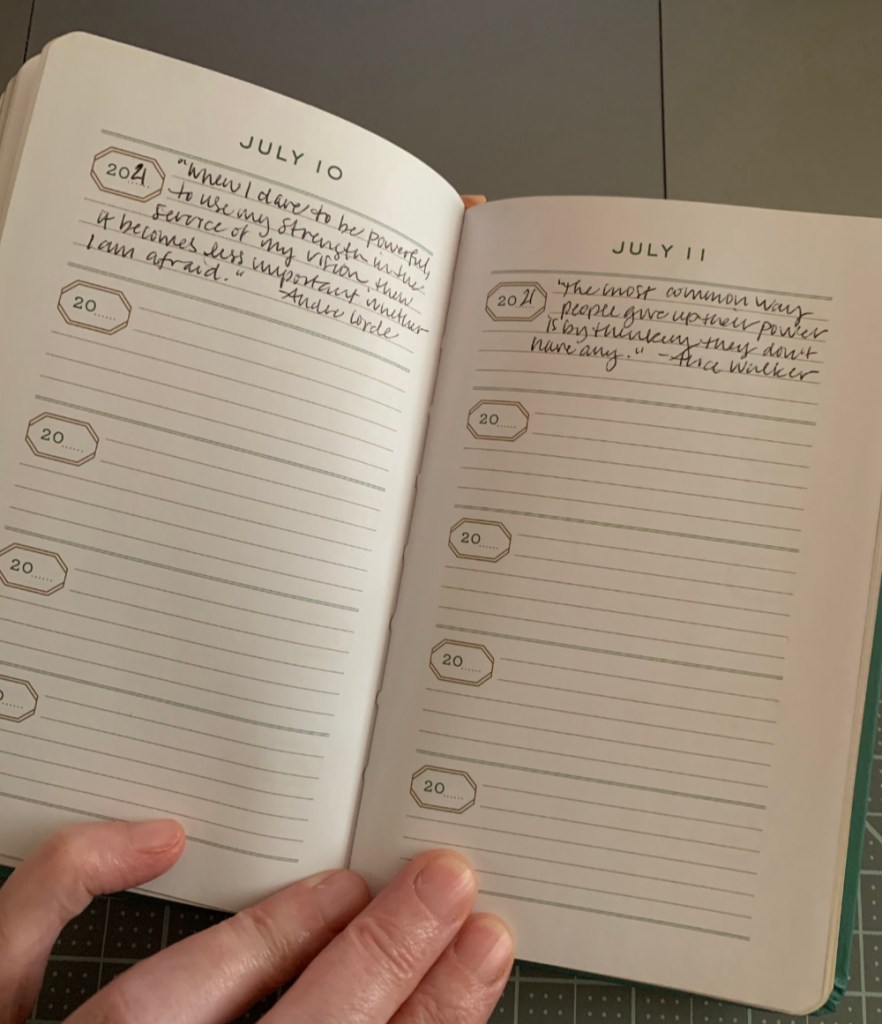 JULY 10
2021
"When I dare to be powerful,
to use my strength in the
service of my vision, then
it becomes less important whether
I am afraid."
-Audre Lorde
20......
20......
20......
JULY 11
2021
"The most common way
people give up their power
is by thinking they don't
have any." -Alice Walker
20......
20......
20......
20......